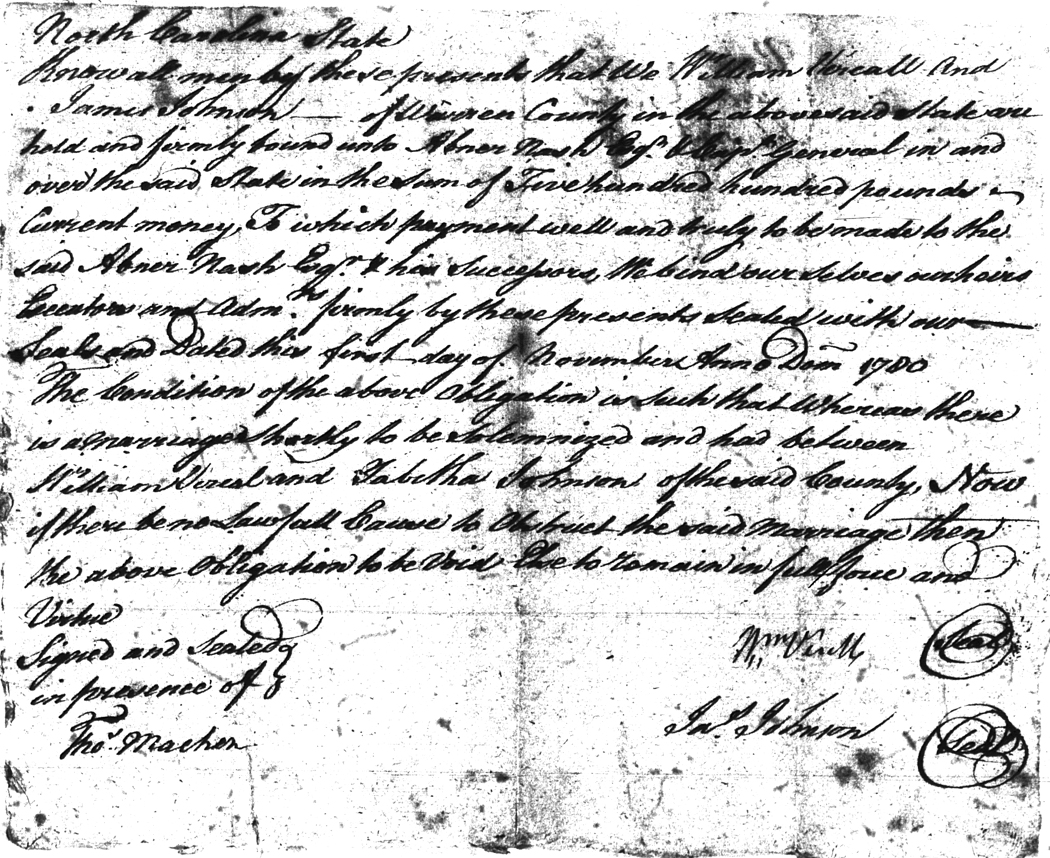 North Carolina State
Know all men by these presents that We William Vircall And
James Johnson — of Warren County in the abovesaid State are
held and firmly bound unto Abner Nash Esqr. & Capt. General in and
over the said State in the Sum of Five hundred hundred pounds
Current money, To which payment well and truly to be made to the
said Abner Nash Esqr. & his Successors, We bind our selves our heirs
Executors and Admrs. firmly by these presents Sealed with our
Seals and Dated this first day of November Anno Dom 1780
The Condition of the above Obligation is such that Whereas there
is a marriage Shortly to be Solemnized and had between
William Vircal and Tabitha Johnson of the said County, Now
if there be no Lawfull Cause to Obstruct the said Marriage then
the above Obligation to be Void Else to remain in full force and
Virtue
Signed and Sealed
in presence of
Wm
Seal
Jas. Johnson
Seal
Thos. Machen